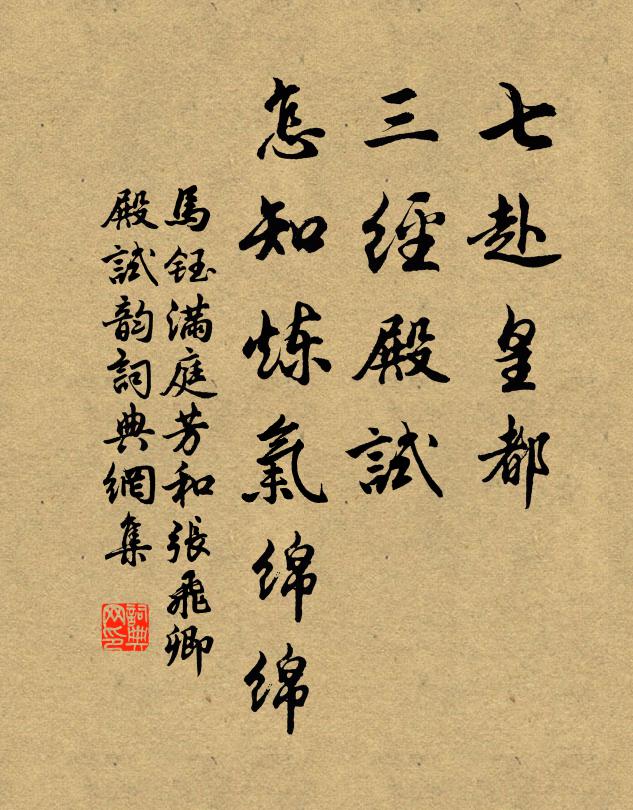 七赴皇都
三經殿試
怎知炼氣綿綿
馬鈺滿庭芳和張飛卿
殿試韵詞典網集
詞典
网印